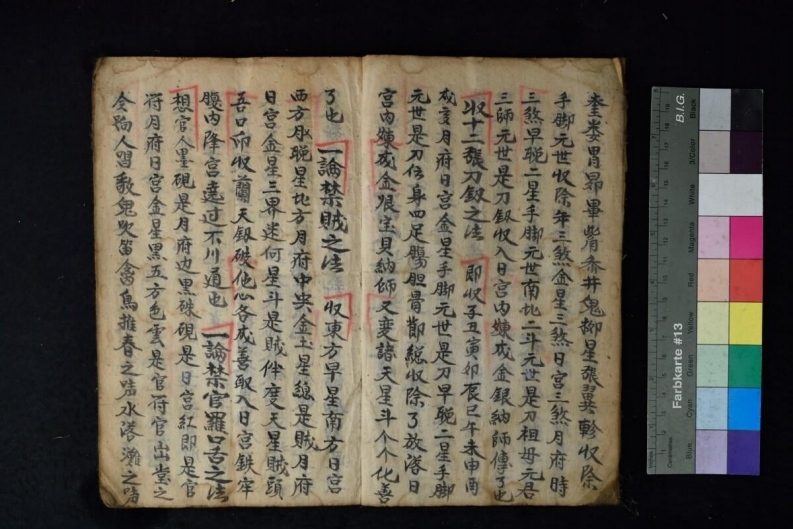 奎婁胃昴畢觜參井鬼柳星張翼軫收除
手脚元世收除年三煞金星三煞日宮三煞月府時
三煞早晚二星手脚元世南北二斗元世是刀祖母元君
三師元世是刀釼收入日宮內煉成金銀納師傳了也
收十二張刀釼之法 即收子丑寅卯辰巳午未申酉
戌亥月府日宮金星手脚元世是刀早晚二星手脚
元世是刀伝身四足腸胆骨都總收除了放落日
宮內煉成金銀宝貝納師又变諸天星斗个个化善
了也 一論禁賊之法 收東方早星南方日宮
西方晚星北方月府中央金土星總是賊月府
日宮金星三界迷何星斗是賊伴度天星賊頭
吾口卯收蘭天釼破他心各成善取入日宮鉄牢
腹內降宮遠过不川道也 一論禁官羅口舌之法
想官人墨硯是月府边黑硃硯是日宮紅即是官
符月府日宮金星黑五方色雲是官符官出堂之
令狗人習教鬼吹笛禽鳥推春之啼水落灘之啼
B.I.G.
Farbkarte #13
Centimetres
Inches
Blue
Cyan
Green
Yellow
Red
Magenta
White
3/Color
Black